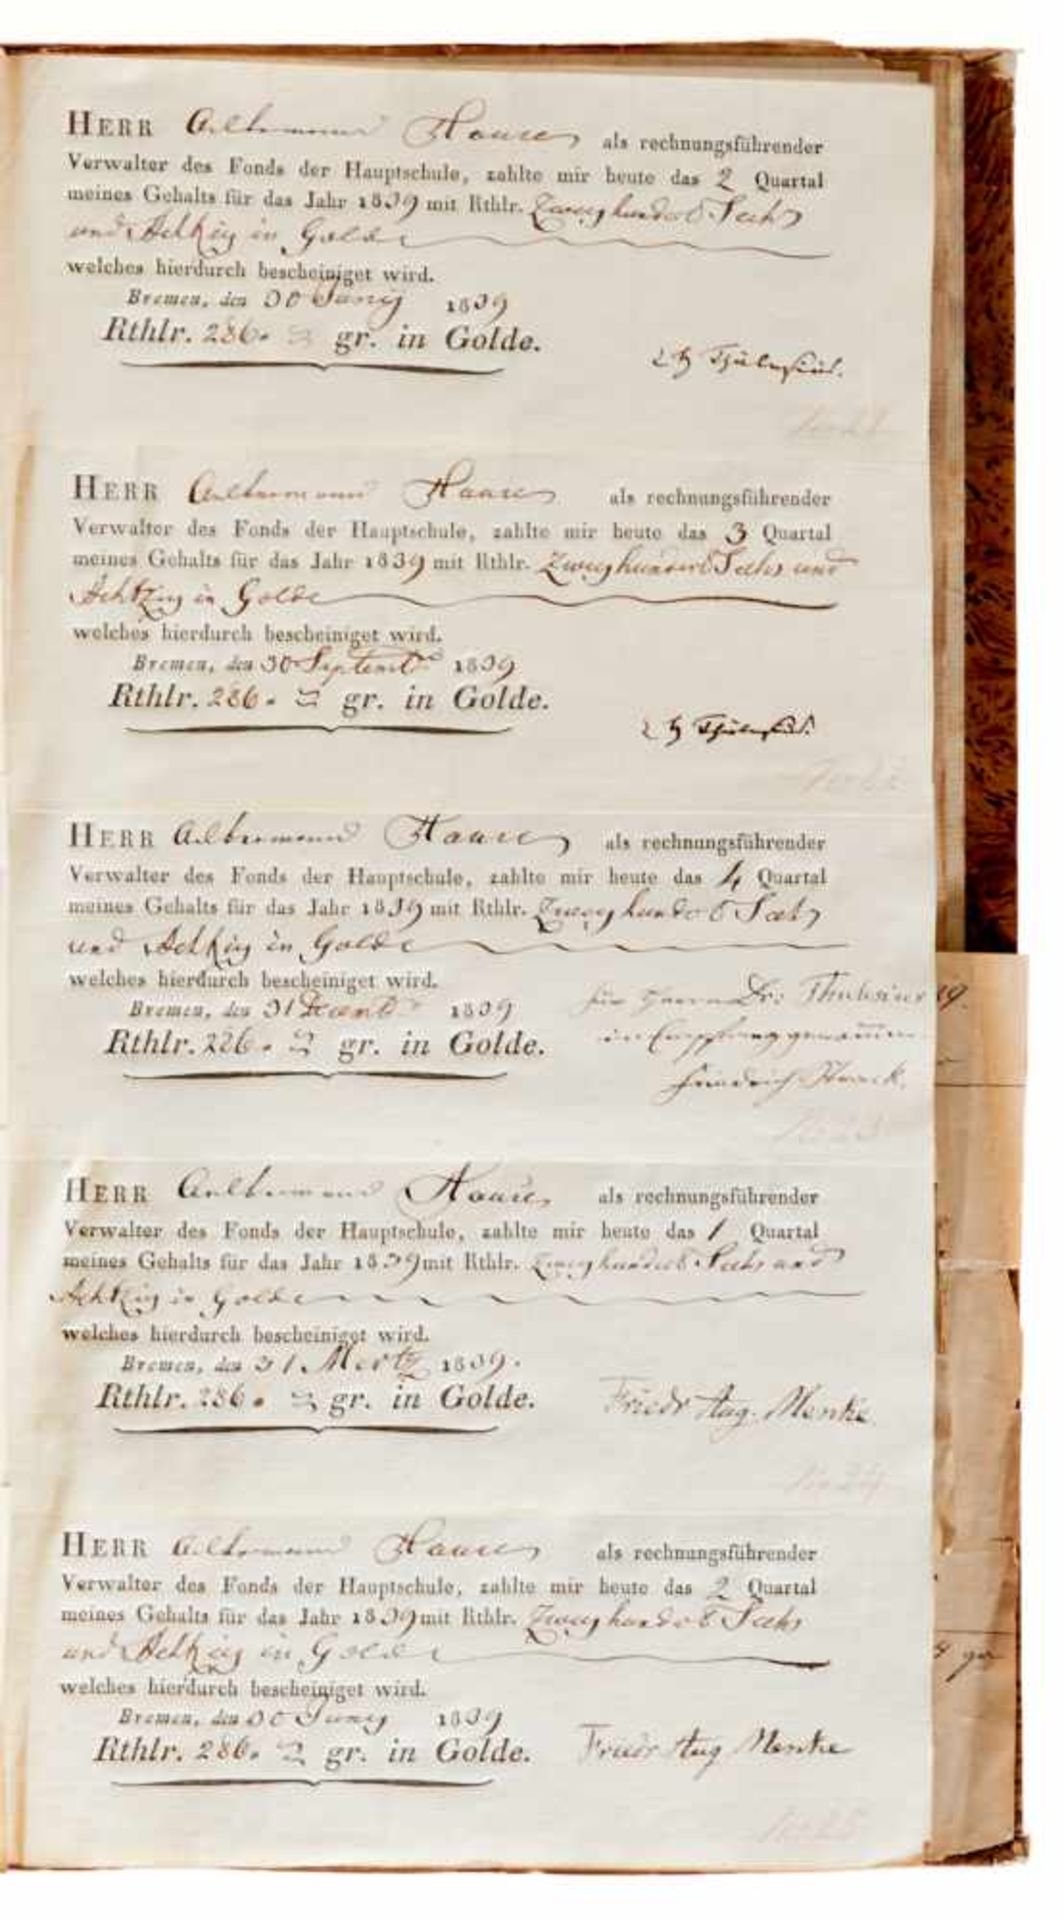 HERR Aeltermann Haase als rechnungsführender
Verwalter des Fonds der Hauptschule, zahlte mir heute das 2 Quartal
meines Gehalts für das Jahr 1839 mit Rthlr. Zweyhundert Sechs
und Achtzig in Golde
welches hierdurch bescheiniget wird.
Bremen, den 30 Juny 1839
Rthlr. 286. gr. in Golde.
HERR Aeltermann Haase als rechnungsführender
Verwalter des Fonds der Hauptschule, zahlte mir heute das 3 Quartal
meines Gehalts für das Jahr 1839 mit Rthlr. Zweyhundert Sechs und
Achtzig in Golde
welches hierdurch bescheiniget wird.
Bremen, den 30 Septembr 1839
Rthlr. 286. gr. in Golde.
HERR Aeltermann Haase als rechnungsführender
Verwalter des Fonds der Hauptschule, zahlte mir heute das 4 Quartal
meines Gehalts für das Jahr 1839 mit Rthlr. Zweyhundert Sechs
und Achtzig in Golde
welches hierdurch bescheiniget wird.
Bremen, den 31 Decemb 1839
für Herrn Dr. Thulesius
Rthlr. 286. gr. in Golde.
in Empfang genommen
Friedrich
HERR Aeltermann Haase als rechnungsführender
Verwalter des Fonds der Hauptschule, zahlte mir heute das 1 Quartal
meines Gehalts für das Jahr 1839 mit Rthlr. Zweyhundert Sechs und
Achtzig in Golde
welches hierdurch bescheiniget wird.
Bremen, den 31 Mertz 1839.
Rthlr. 286. gr. in Golde.
Friedr Aug. Menke
HERR Aeltermann Haase als rechnungsführender
Verwalter des Fonds der Hauptschule, zahlte mir heute das 2 Quartal
meines Gehalts für das Jahr 1839 mit Rthlr. Zweyhundert Sechs
und Achtzig in Golde
welches hierdurch bescheiniget wird.
Bremen, den 30 Juny 1839
Rthlr. 286. gr. in Golde.
Friedr Aug Menke